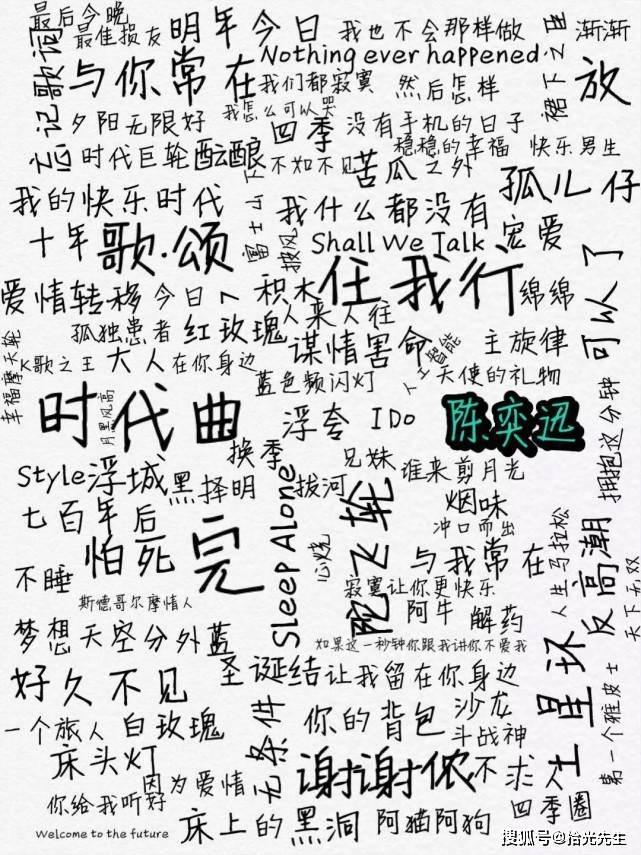 最后今晚
最佳损友
明年今日
我也不会那样做
渐渐
忘记歌词
与你常在
Nothing ever happened
我们都寂寞
然后怎样
裙下之臣
放
夕阳无限好
我怎么可以哭
四季
没有手机的日子
时代巨轮
酝酿
不如不见
苦瓜之外
稳稳的幸福
快乐男生
我的快乐时代
富士山下
我什么都没有
孤儿仔
十年
歌·颂
披风
Shall We Talk
宠爱
爱情转移
今日
积木
任我行
绵绵
可以了
孤独患者
红玫瑰
人来人往
谋情害命
主旋律
幸福摩天轮
K歌之王
大人
在你身边
蓝色频闪灯
人工智能
天使的礼物
时代曲
月黑风高
浮夸
I Do
陈奕迅
拥抱这分钟
换季
兄妹
谁来剪月光
Style
浮城
黑择明
Sleep Alone
拔河
陀飞轮
烟味
七百年后
冲口而出
怕死
完
心烧
与我常在
人生马拉松
反高潮
不睡
寂寞让你更快乐
天下无双
斯德哥尔摩情人
阿牛
解药
梦想天空分外蓝
如果这一秒钟你跟我讲你不爱我
圣诞结
让我留在你身边
土星环
好久不见
第一个雅皮士
一个旅人
白玫瑰
无条件
你的背包
沙龙
斗战神
床头灯
因为爱情
谢谢侬
不求人
你给我听好
四季圈
Welcome to the future
床上的黑洞
阿猫阿狗
搜狐号@拾光先生